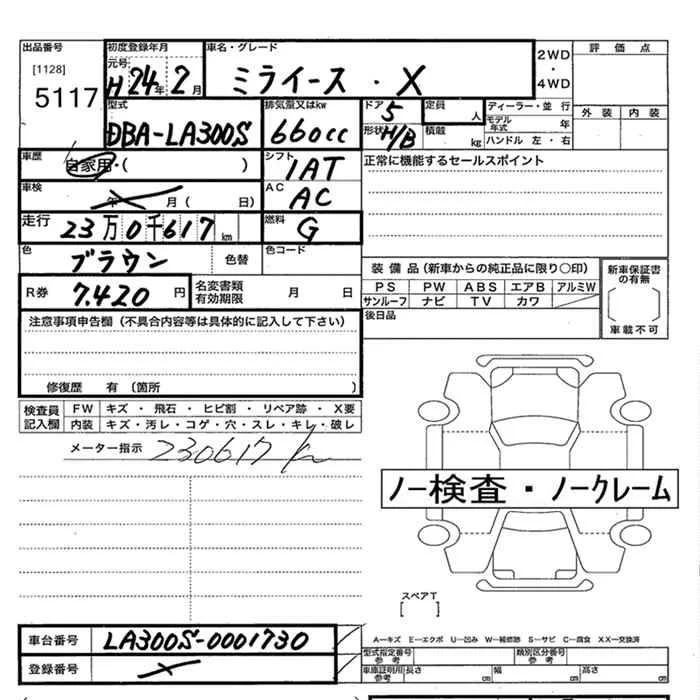 出品番号 初度登録年月 車名・グレード 2WD・4WD 評価点
[1128] 元号
5117 H 24年 2月 ミライース・X
外装 内装
型式 排気量又はkw ドア 5 定員 人 ディーラー・並行
DBA-LA300S 660cc 形状 H/B 積載 kg モデル年式 年
ハンドル 左・右
車歴 自家用・( ) シフト 1AT 正常に機能するセールスポイント
車検 年 月( 日) AC AC
走行 23万0千617km 燃料 G
色 ブラウン 色替 色コード
装備品(新車からの純正品に限り○印) 新車保証書の有無
R券 7.420円 名変書類有効期限 月 日 PS PW ABS エアB アルミW
サンルーフ ナビ TV カワ
注意事項申告欄(不具合内容等は具体的に記入して下さい) 後日品 車載不可
修復歴 有(箇所 )
検査員記入欄 FW キズ・飛石・ヒビ割・リペア跡・X要
内装 キズ・汚レ・コゲ・穴・スレ・キレ・破レ
メーター指示 230617km
ノー検査・ノークレーム
スペアT
[ ]
車台番号 LA300S-0001730
A―キズ E―エクボ U―凹み W―補修跡 S―サビ C―腐食 XX―交換済
登録番号 型式指定番号 参考 類別区分番号 参考
車庫証明用参考 長さ cm 幅 cm 高さ cm